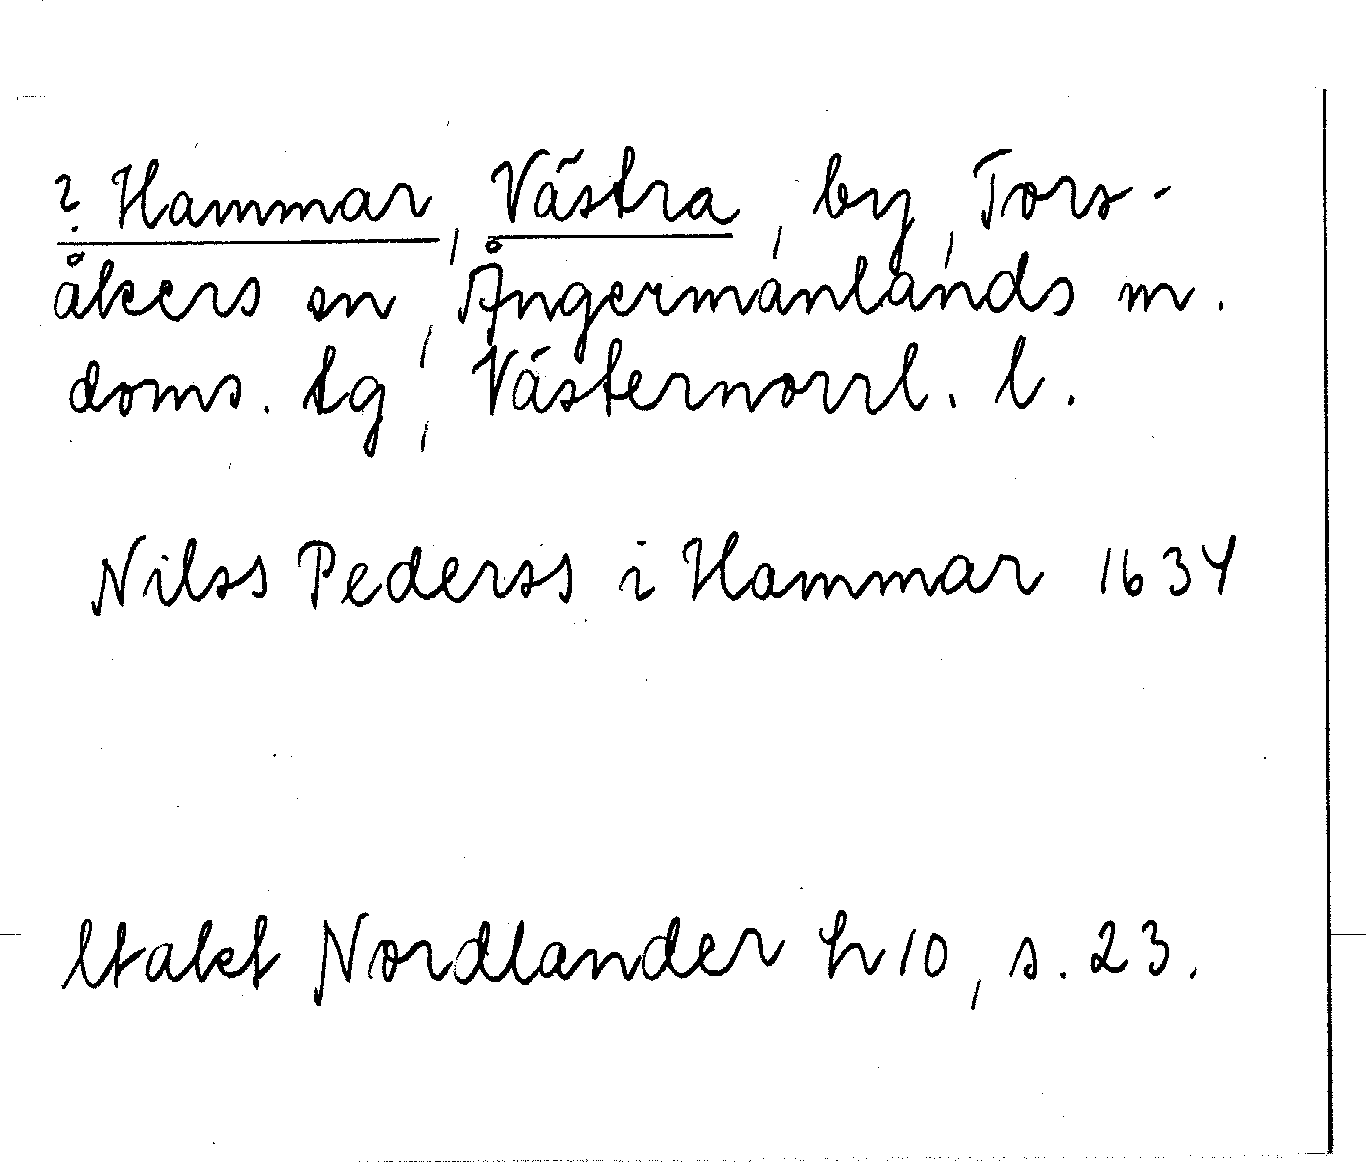 ? Hammar, Västra, by, Tors-
åkers sn, Ångermanlands m.
doms. tg, Västernorrl. l.
Nilss Pederss i Hammar 1634
Utakt Nordlander h 10, s. 23.